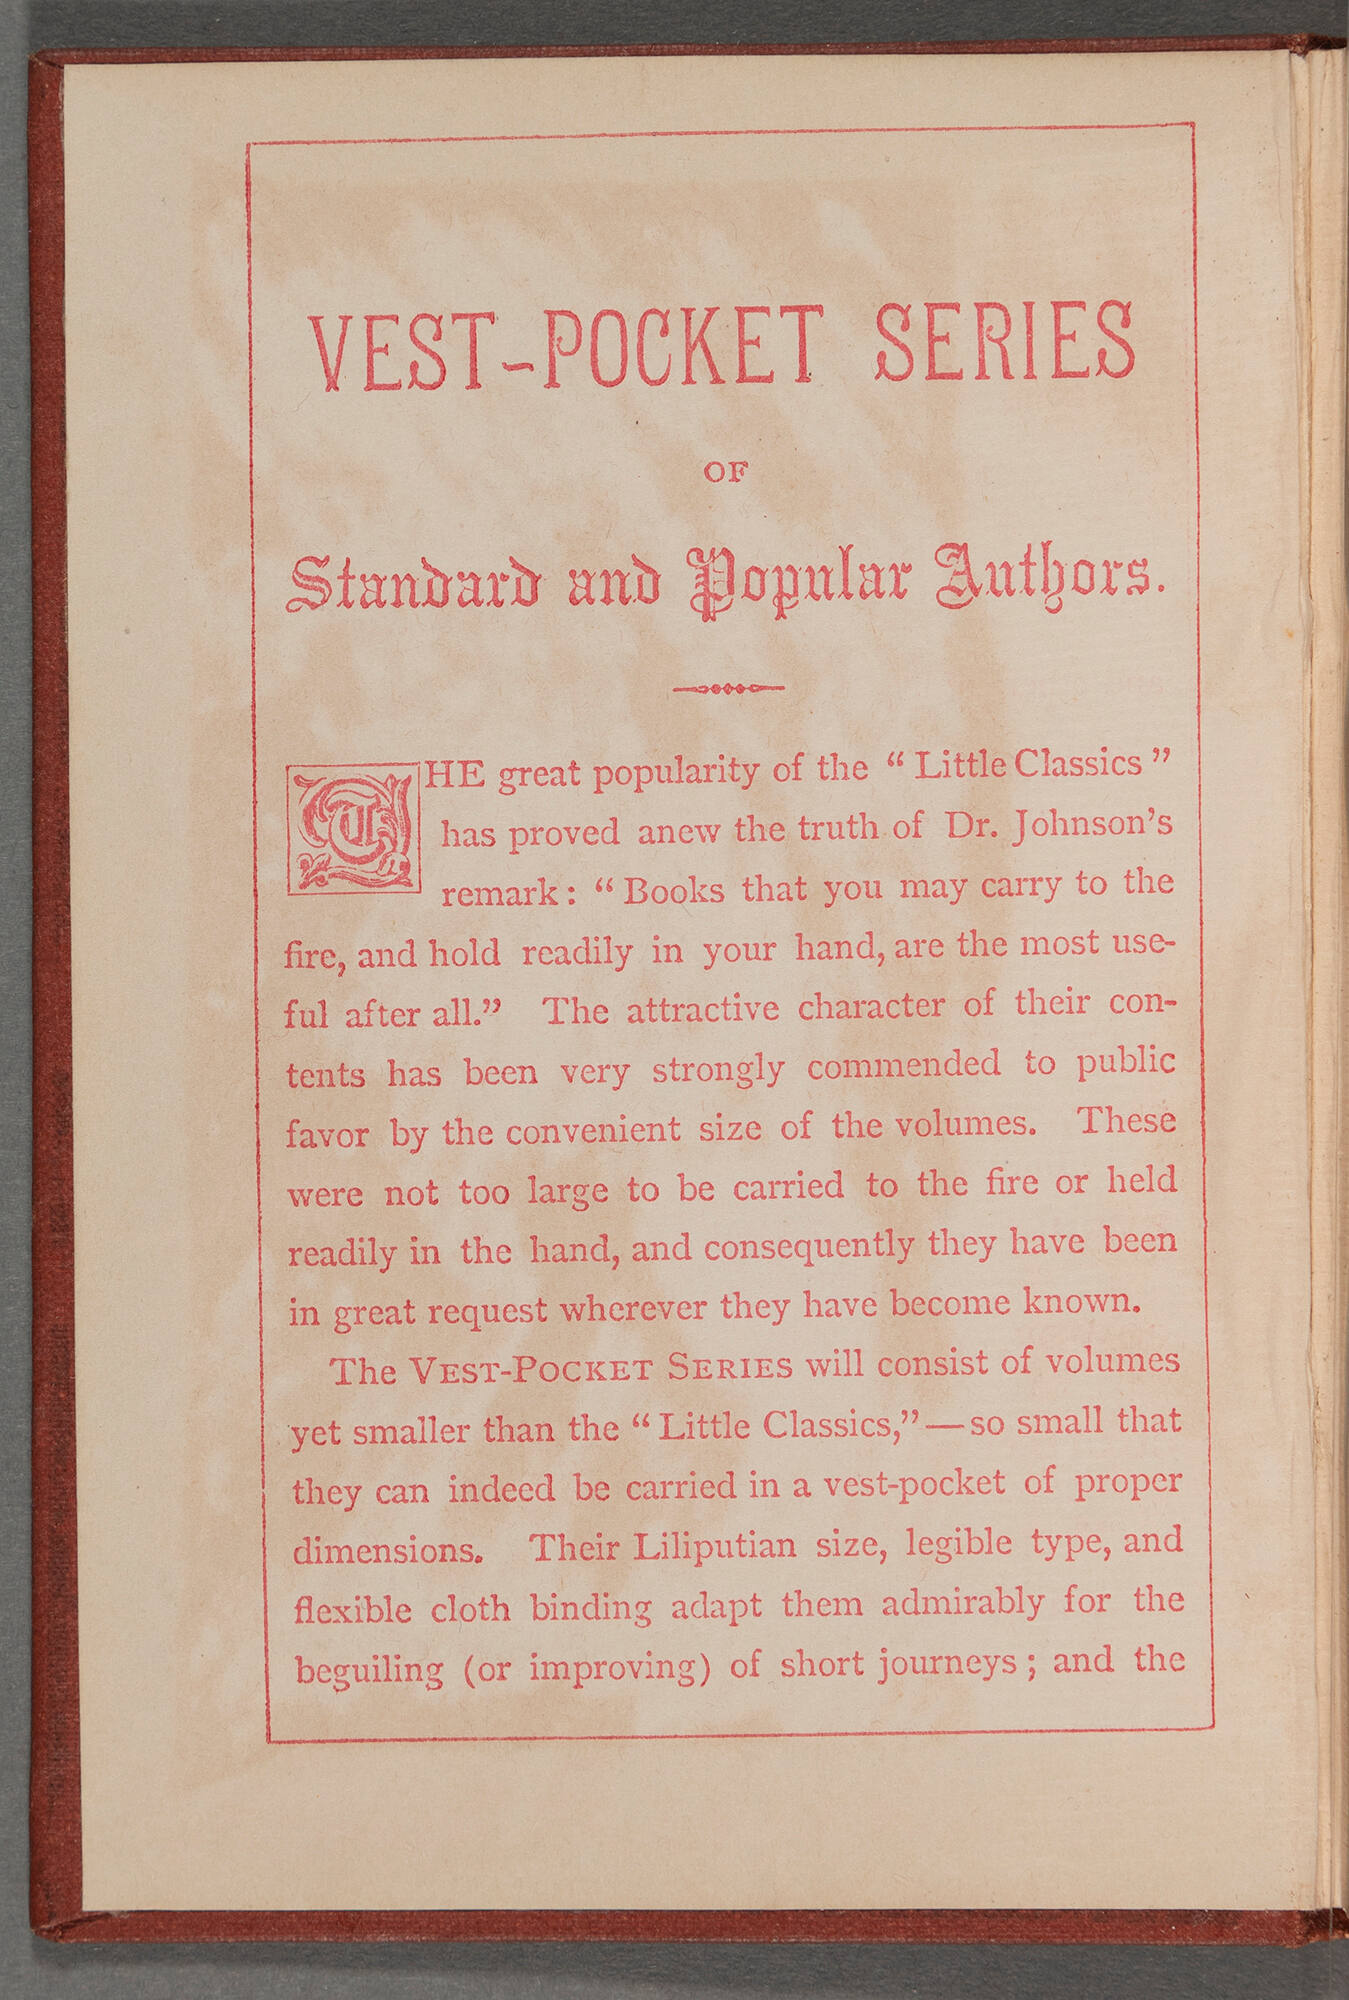 VEST-POCKET SERIES
OF
Standard and Popular Authors.
THE great popularity of the “Little Classics”
has proved anew the truth of Dr. Johnson’s
remark: “Books that you may carry to the
fire, and hold readily in your hand, are the most use-
ful after all.” The attractive character of their con-
tents has been very strongly commended to public
favor by the convenient size of the volumes. These
were not too large to be carried to the fire or held
readily in the hand, and consequently they have been
in great request wherever they have become known.
The VEST-POCKET SERIES will consist of volumes
yet smaller than the “Little Classics,”—so small that
they can indeed be carried in a vest-pocket of proper
dimensions. Their Liliputian size, legible type, and
flexible cloth binding adapt them admirably for the
beguiling (or improving) of short journeys; and the